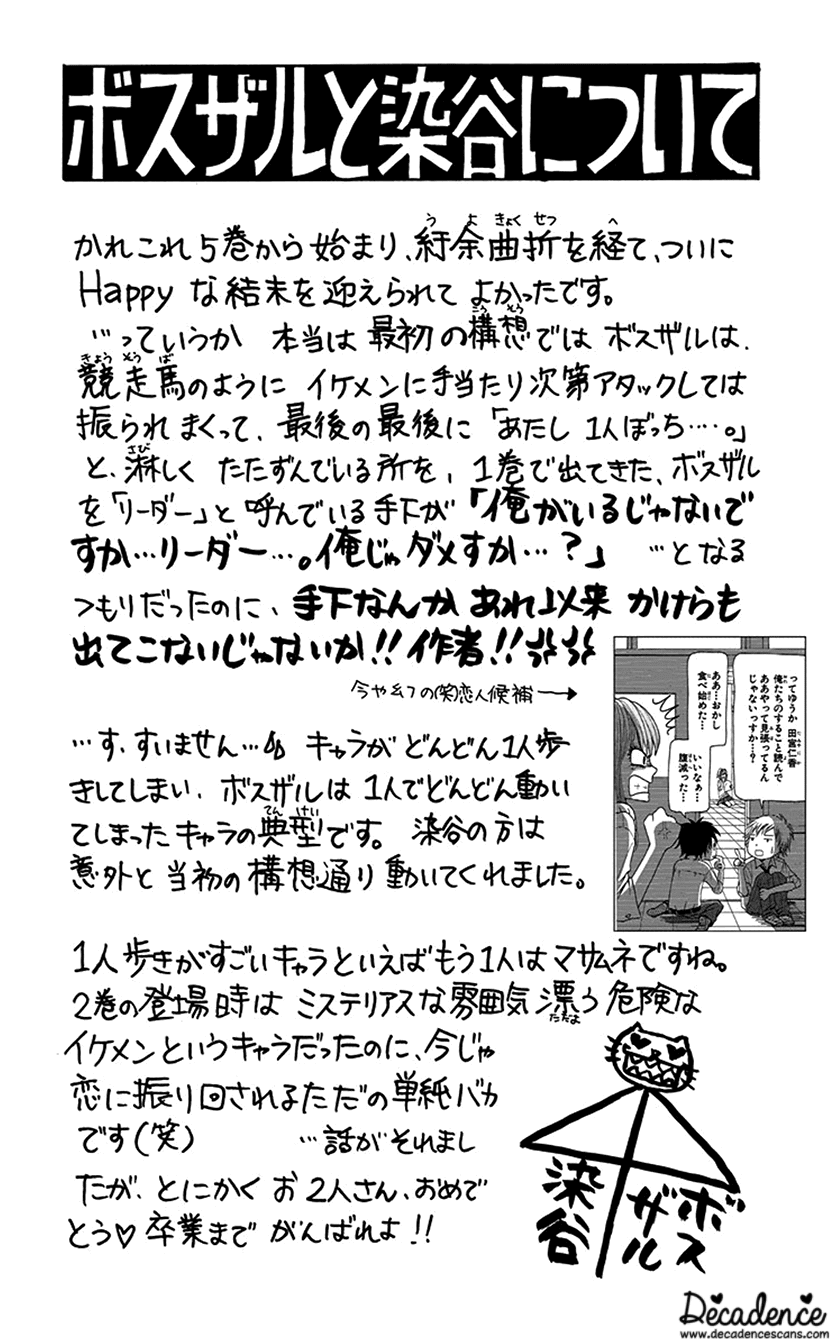 ボスザルと染谷について
かれこれ5巻から始まり、紆余曲折を経て、ついに
うよきょくせつ へ
Happyな結末を迎えられてよかったです。
…っていうか 本当は最初の構想ではボスザルは、
こうそう
競走馬のようにイケメンに手当たり次第アタックしては
きょうそうば
振られまくって、最後の最後に「あたし1人ぼっち…。」
と、淋しくたたずんでいる所を、1巻で出てきた、ボスザル
さび
を「リーダー」と呼んでいる手下が「俺がいるじゃないで
すか…リーダー…。俺じゃダメすか…?」…となる
つもりだったのに、手下なんかあれ以来かけらも
出てこないじゃないか!!作者!!
今や幻の(笑)恋人候補→
ってゆうか 田宮仁香
俺たちのすること読んで
ああやって見張ってるん
じゃないっすか…?
ああ…おかし
食べ始めた…
いいなぁ…
腹減った…
…す、すいません… キャラがどんどん1人歩
きしてしまい、ボスザルは1人でどんどん動い
てしまったキャラの典型です。 染谷の方は
てんけい
意外と当初の構想通り動いてくれました。
1人歩きがすごいキャラといえばもう1人はマサムネですね。
2巻の登場時はミステリアスな雰囲気漂う危険な
ただよ
イケメンというキャラだったのに、今じゃ
恋に振り回されるただの単純バカ
です(笑) …話がそれまし
たが、とにかくお2人さん、おめで
とう♡卒業までがんばれよ!!
染谷
ボスザル
Decadence
www.decadencescans.com